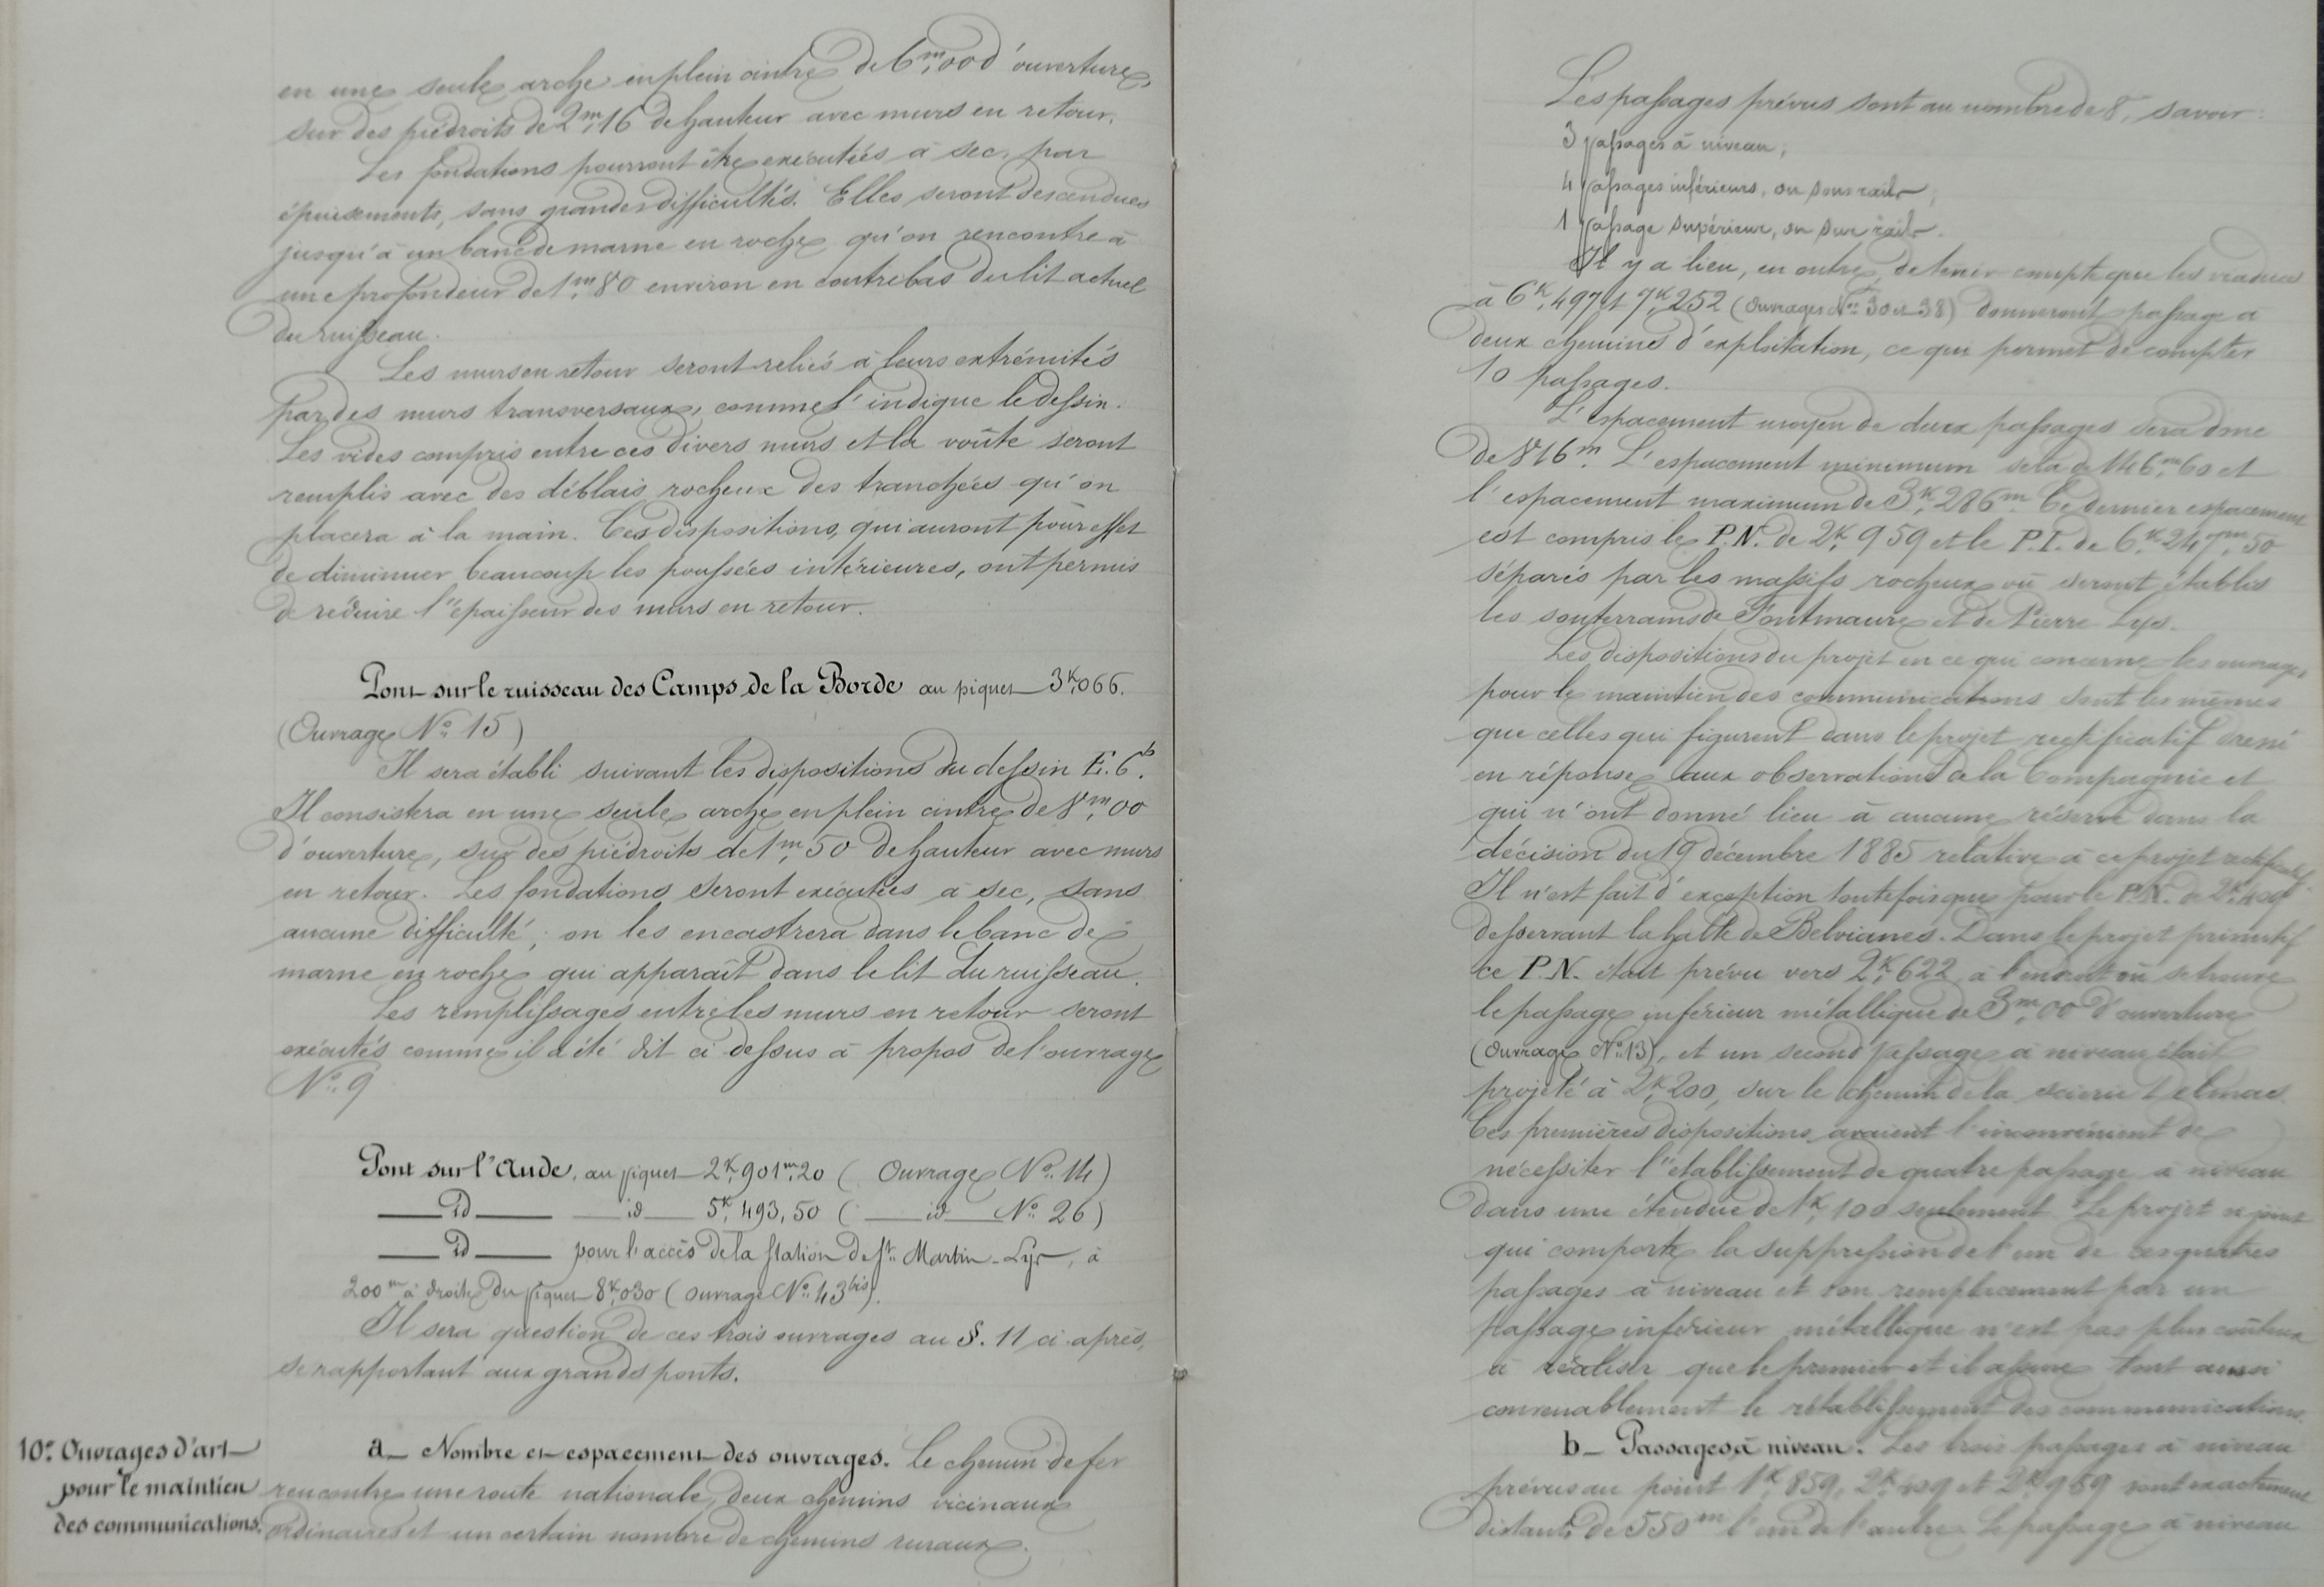 en une seule arche en plein cintre de 6m,00 d'ouverture,
sur des piédroits de 2m,16 de hauteur avec murs en retour.
Les fondations pourront être exécutées à sec, par
épuisements, sans grandes difficultés. Elles seront descendues
jusqu'à un banc de marne en roche qu'on rencontre à
une profondeur de 1m,80 environ en contrebas du lit actuel
du ruisseau.
Les murs en retour seront reliés à leurs extrémités
par des murs transversaux, comme l'indique le dessin.
Les vides compris entre ces divers murs et la voûte seront
remplis avec des déblais rocheux des tranchées qu'on
placera à la main. Ces dispositions, qui auront pour effet
de diminuer beaucoup les poussées intérieures, ont permis
de réduire l'épaisseur des murs en retour.
Pont sur le ruisseau des Camps de la Borde au piquet 3K,066.
(Ouvrage No. 15)
Il sera établi suivant les dispositions du dessin E. 6b.
Il consistera en une seule arche en plein cintre de 8m,00
d'ouverture, sur des piédroits de 1m,50 de hauteur avec murs
en retour. Les fondations seront exécutées à sec, sans
aucune difficulté; on les encastrera dans le banc de
marne en roche qui apparaît dans le lit du ruisseau.
Les remplissages entre les murs en retour seront
exécutés comme il a été dit ci dessus à propos de l'ouvrage
No. 9
Pont sur l'Aude, au piquet 2K,901m,20 (Ouvrage No. 14)
Id id 5K,493,50 (id No. 26)
Id pour l'accès de la station de St. Martin-Lys, à
200m à droite du piquet 8K,030 (ouvrage No. 43bis).
Il sera question de ces trois ouvrages au §. 11 ci-après,
se rapportant aux grands ponts.
10o. Ouvrages d'art
pour le maintien
des communications.
a_ Nombre et espacement des ouvrages. Le chemin de fer
rencontre une route nationale, deux chemins vicinaux
ordinaires et un certain nombre de chemins ruraux.
Les passages prévus sont au nombre de 8, savoir:
3 passages à niveau;
4 passages inférieurs, ou sous rails;
1 passage supérieur, ou sur rails.
Il y a lieu, en outre, de tenir compte que les viaducs
à 6K,497 et 7K,252 (Ouvrages Nos. 30 et 38) donneront passage à
deux chemins d'exploitation, ce qui permet de compter
10 passages.
L'espacement moyen de deux passages sera donc
de 816m. L'espacement minimum sera de 146m,60 et
l'espacement maximum de 3K,286m. Ce dernier espacement
est compris le P.N. de 2K,959 et le P.I. de 6K,247m,50
séparés par les massifs rocheux où seront établis
les souterrains de Fontmaure et de Pierre Lys.
Les dispositions du projet en ce qui concerne les ouvrages
pour le maintien des communications sont les mêmes
que celles qui figurent dans le projet rectificatif dressé
en réponse aux observations de la Compagnie et
qui n'ont donné lieu à aucune réserve dans la
décision du 19 décembre 1885 relative à ce projet rectificatif.
Il n'est fait d'exception toutefois que pour le P.N. de 2K,409
desservant la halte de Belvianes. Dans le projet primitif
ce P.N. était prévu vers 2K,622 à l'endroit où se trouve
le passage inférieur métallique de 3m,00 d'ouverture
(Ouvrage No. 13), et un second passage à niveau était
projeté à 2K,200, sur le chemin de la scierie Delmas.
Ces premières dispositions avaient l'inconvénient de
nécessiter l'établissement de quatre passage à niveau
dans une étendue de 1K,100 seulement. Le projet ci-joint
qui comporte la suppression de l'un de ces quatres
passages à niveau et son remplacement par un
passage inférieur métallique n'est pas plus coûteux
à réaliser que le premier et il assure tout aussi
convenablement le rétablissement des communications.
b_ Passages à niveau. Les trois passages à niveau
prévus au point 1K,859, 2K,409 et 2K,959 sont exactement
distants de 550m l'un de l'autre. Le passage à niveau